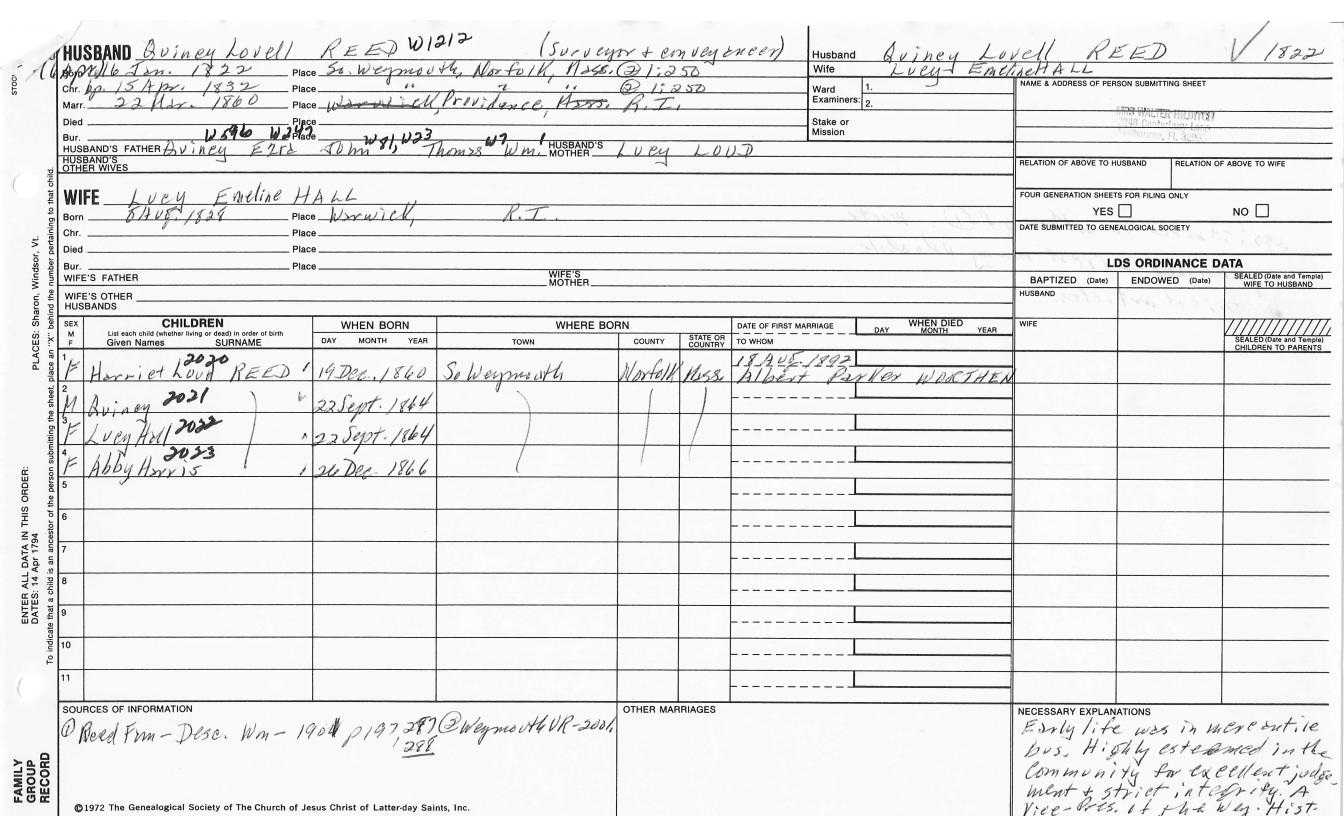 HUSBAND Quincy Lovell REED W1212 (Surveyor & conveyancer)
Born 16 Jan. 1822 Place So. Weymouth, Norfolk, Mass. ② 1:250
Chr. bp. 15 Apr. 1832 Place " " " ② 1:250
Marr. 22 Mar. 1860 Place Warwick, Providence, Mass. R.I.
Died Place
Bur. Place
W596 W242 W81, W23 W7 1
HUSBAND'S FATHER Quincy Ezra John Thomas Wm. HUSBAND'S MOTHER Lucy LOUD
HUSBAND'S OTHER WIVES
WIFE Lucy Emeline HALL
Born 8 Aug. 1828 Place Warwick, R.I.
Chr. Place
Died Place
Bur. Place
WIFE'S FATHER WIFE'S MOTHER
WIFE'S OTHER HUSBANDS
Husband Quincy Lovell REED V 1822
Wife Lucy Emeline HALL
Ward Examiners: 1. 2.
Stake or Mission
NAME & ADDRESS OF PERSON SUBMITTING SHEET
RELATION OF ABOVE TO HUSBAND RELATION OF ABOVE TO WIFE
FOUR GENERATION SHEETS FOR FILING ONLY
YES NO
DATE SUBMITTED TO GENEALOGICAL SOCIETY
LDS ORDINANCE DATA
BAPTIZED (Date) ENDOWED (Date) SEALED (Date and Temple) WIFE TO HUSBAND
HUSBAND
WIFE
SEALED (Date and Temple) CHILDREN TO PARENTS
SEX M F CHILDREN List each child (whether living or dead) in order of birth Given Names SURNAME WHEN BORN DAY MONTH YEAR WHERE BORN TOWN COUNTY STATE OR COUNTRY DATE OF FIRST MARRIAGE TO WHOM WHEN DIED DAY MONTH YEAR
1 F Harriet Loud REED 2020 19 Dec. 1860 So Weymouth Norfolk Mass. 18 Aug. 1892 Albert Parker WORTHEN
2 M Quincy 2021 22 Sept. 1864
3 F Lucy Hall 2022 22 Sept. 1864
4 F Abby Harris 2023 26 Dec. 1866
5
6
7
8
9
10
11
SOURCES OF INFORMATION
① Reed Fam - Desc. Wm - 1901 p197, 287 ② Weymouth VR - 2001.
288
OTHER MARRIAGES
NECESSARY EXPLANATIONS
Early life was in mercantile
bus. Highly esteemed in the
Community for excellent judge-
ment & strict integrity. A
Vice-Pres. of the Wey. Hist-
©1972 The Genealogical Society of The Church of Jesus Christ of Latter-day Saints, Inc.
PLACES: Sharon, Windsor, Vt.
ENTER ALL DATA IN THIS ORDER:
DATES: 14 Apr 1794
To indicate that a child is an ancestor of the person submitting the sheet, place an "X" behind the number pertaining to that child.
FAMILY
GROUP
RECORD